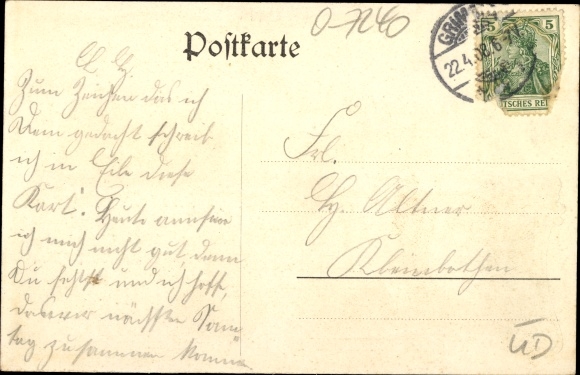 O-7240
Postkarte
GRIM
22.4.08. 6-7N
5
5
TSCHES REI
L. H.
Zum Zeichen das ich
Dein gedacht schreib
ich in Eile diese
Kart. Heute amisire
ich mich nicht gut, denn
Du fehlst und ich hoffe,
das wir nächsten Sonn
tag zusammen komme
Frl.
H. Altner
Kleinbothen
ÜD